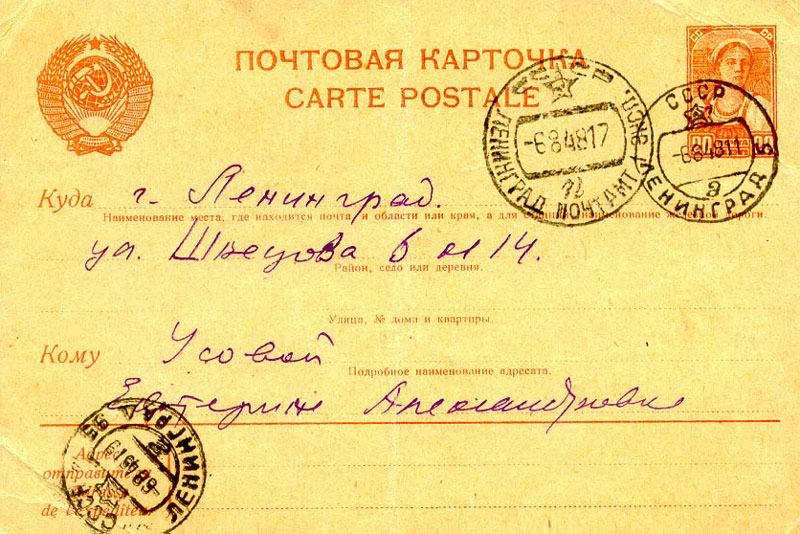 ПОЧТОВАЯ КАРТОЧКА
CARTE POSTALE
СССР
ЛЕНИНГРАД ПОЧТАМТ
-684817
СССР
-6 8 48 11
ЛЕНИНГРАД 5
Э
Куда г. Ленинград.
Наименование места, где находится почта, и области или края, а для станций наименование железной дороги.
ул. Швецова 6 14.
Район, село или деревня.
Улица, № дома и квартиры.
Кому Усовой
Подробное наименование адресата.
Екатерине Александровне
ЛЕНИНГРАД 95
Адрес
отправителя
de l'expéditeur